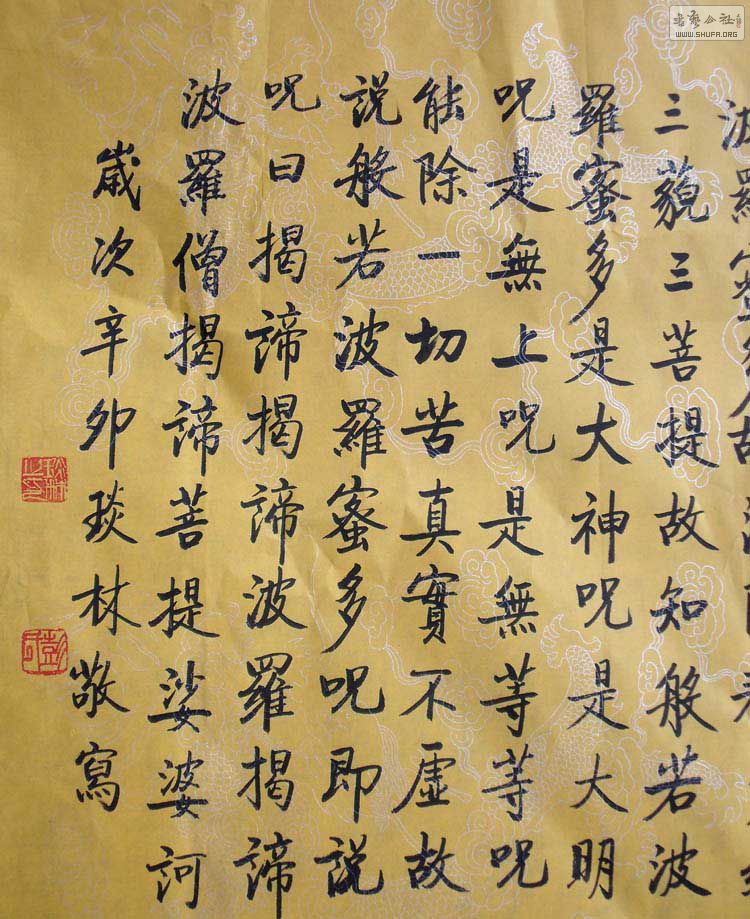 波羅
三藐三菩提故知般若波
羅蜜多是大神咒是大明
咒是無上咒是無等等咒
能除一切苦真實不虛故
說般若波羅蜜多咒即說
咒曰揭諦揭諦波羅揭諦
波羅僧揭諦菩提娑婆訶
歲次辛卯琰林敬寫
WWW.SHUFA.ORG